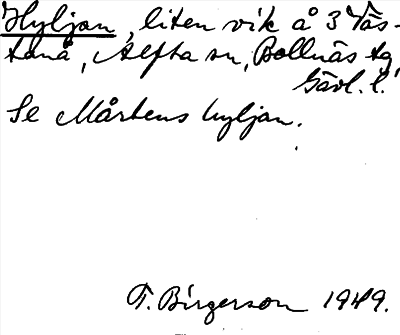 Hyljan, liten vik å 3 Väs-
tanå, Alfta sn, Bollnäs tg
Gävl. l.
Se Mårtens hyljan.
T. Birgerson 1949.